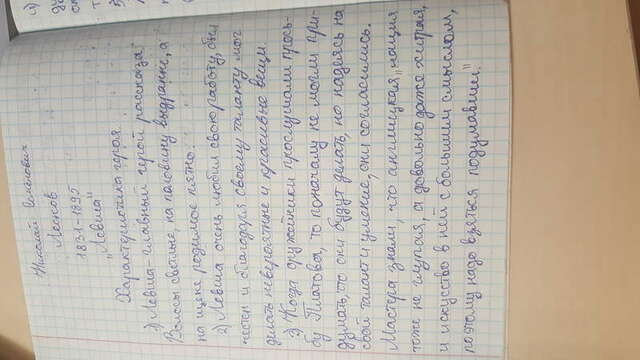 Николай Семёнович
Лесков
1831-1895
"Левша"
Характеристика героя.
1) Левша-главный герой рассказа.
Волосы светлые, на половину выдраные, а
на щеке родимое пятно.
2) Левша очень любил свою работу, был
честен и благодаря своему таланту мог
делать невероятные и красивые вещи
3) Когда оружейники прослушали прось-
бу Платова, то поначалу не могли при-
думать, что они будут делать, но надеясь на
свой талант и умение, они согласились.
Мастера знали, что английская "нация
тоже не глупая, а довольно даже хитрая,
и искусство в ней с большим смыслом,
поэтому надо взяться подумавши".
2)
3)